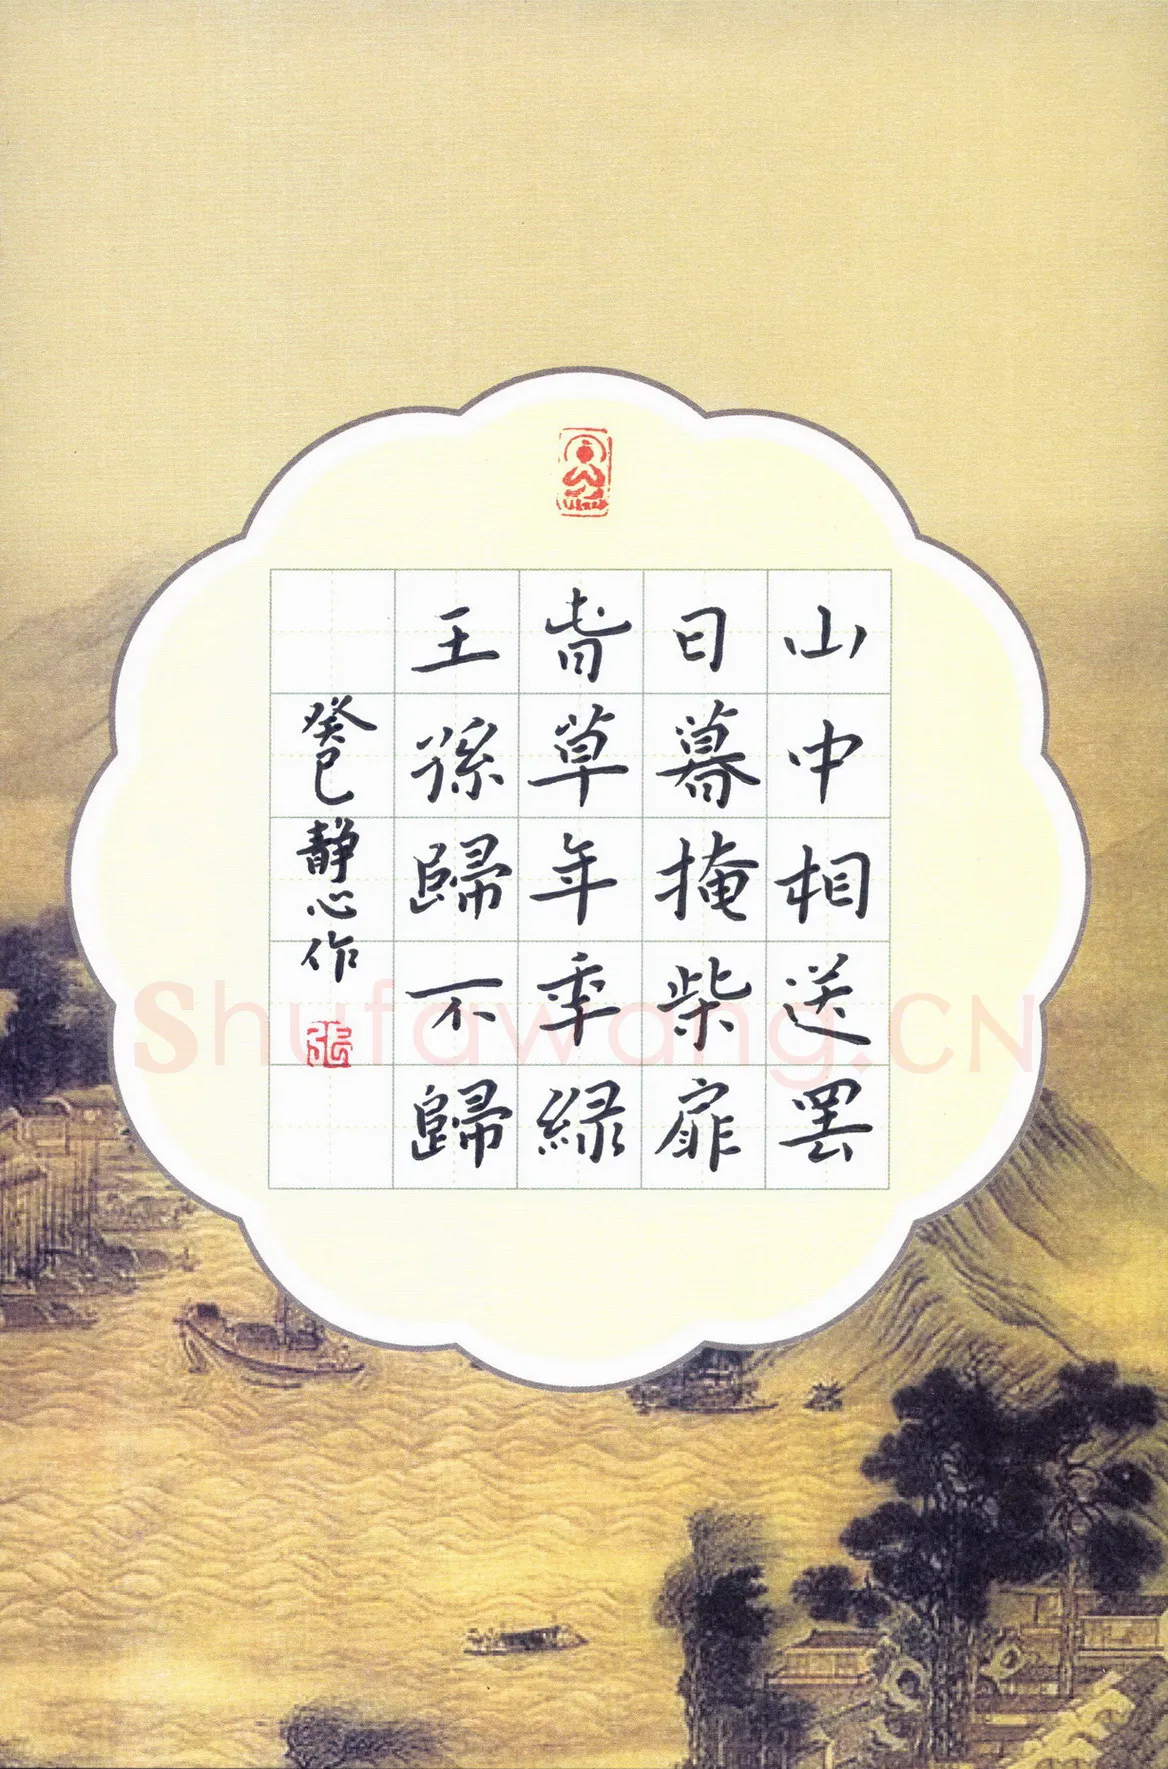 山中相送罷
日暮掩柴扉
旾草年秊緑
王孫歸不歸
癸巳靜心作
張
Shufawang.CN